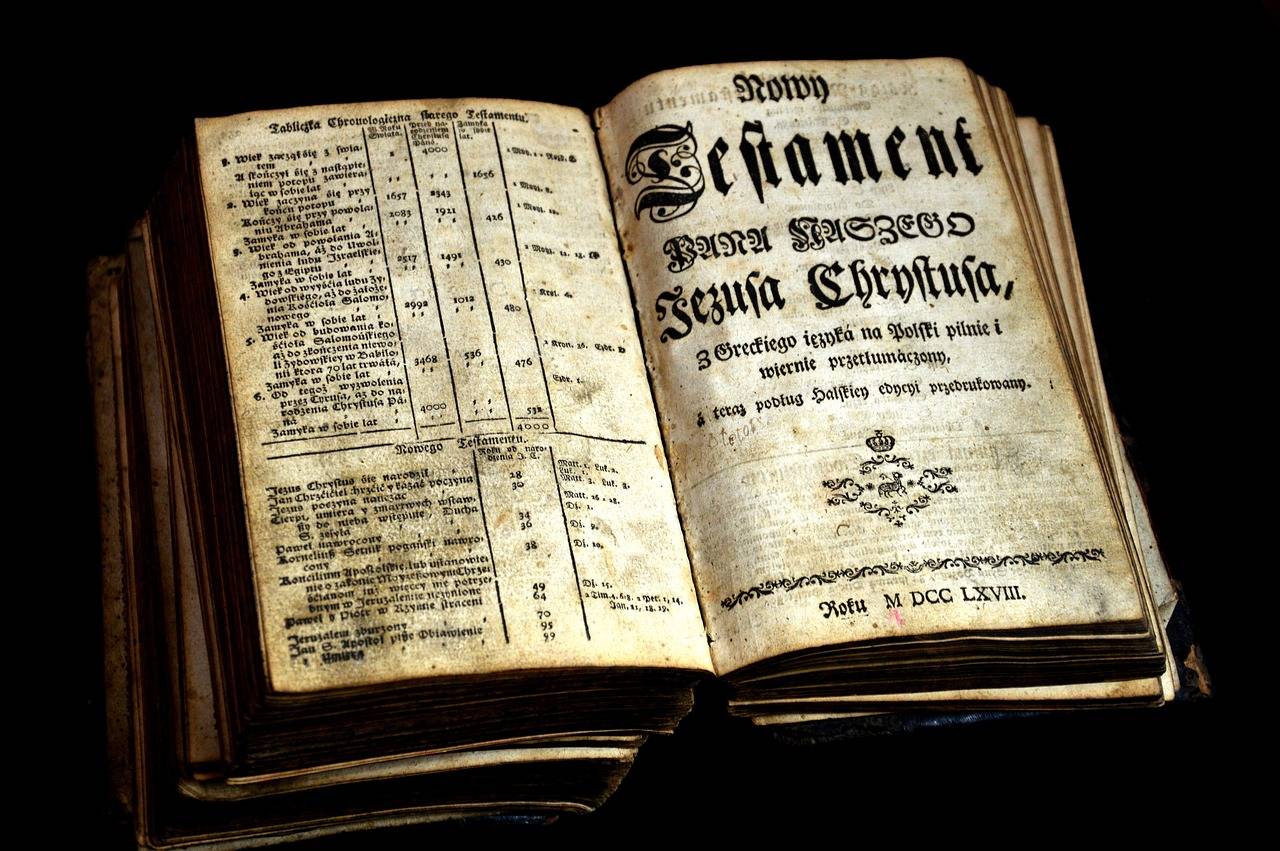 Tabliczka Chronologiczna starego Testamentu.
W Roku Swiata. Przed narodzeniem Chrystusa Pana. Zamyka w sobie lat.
1. Wiek zaczął się z świa-
tem 1 4000 1 Moy. 1
A skończył się z nastąpie-
niem potopu zawiera-
iąc w sobie lat 1656
2. Wiek zaczyna się przy
końcu potopu 1657 2343
Kończy się przy powoła-
niu Abrahama 2083 1921
Zamyka w sobie lat 426
3. Wiek od powołania A-
brahama, aż do Uwol-
nienia ludu Izraelskie-
go z Egiptu 2517 1491
Zamyka w sobie lat 430
4. Wiek od wyyścia ludu Ży-
dowskiego, aż do założe-
nia Kościoła Salomo-
nowego 2992 1012
Zamyka w sobie lat 480
5. Wiek od budowania ko-
ścioła Salomońskiego
aż do zkończenia niewo-
li Żydowskiey w Babilo-
nii ktora 70 lat trwała, 3468 536
Zamyka w sobie lat 476
6. Od tegoż wyzwolenia
przez Cyrusa, aż do na-
rodzenia Chrystusa Pa-
na 4000
Zamyka w sobie lat 532
4000
Nowego Testamentu.
Roku od naro-
dzenia J. C.
Jezus Chrystus się narodził
Jan Chrzciciel chrzcić y kazać poczyna 28
Jezus poczyna nauczać 30
Cierpi, umiera y zmartwych wstaw-
szy do nieba wstępuie, Ducha
S. zsyła 34
Paweł nawrocony 36
Korneliusz Setnik pogański nawro-
cony 38
Koncilium Apostolskie, lub ustanowie-
nie o zakonie Moyżeszowym Chrze-
ścianom już więcey nie potrze-
bnym w Jeruzalemie uczynione 49
Paweł y Piotr w Rzymie straceni 64
Jeruzalem zburzony 70
Jan S. Apostoł pisze Obiawienie 95
y umiera 99
Nowy
Testament
PANA NASZEGO
Jezusa Chrystusa,
Z Greckiego ięzyká na Polski pilnie i
wiernie przetłumáczony,
á teraz podług Halskiey edycyi przedrukowany.
Roku M DCC LXVIII.